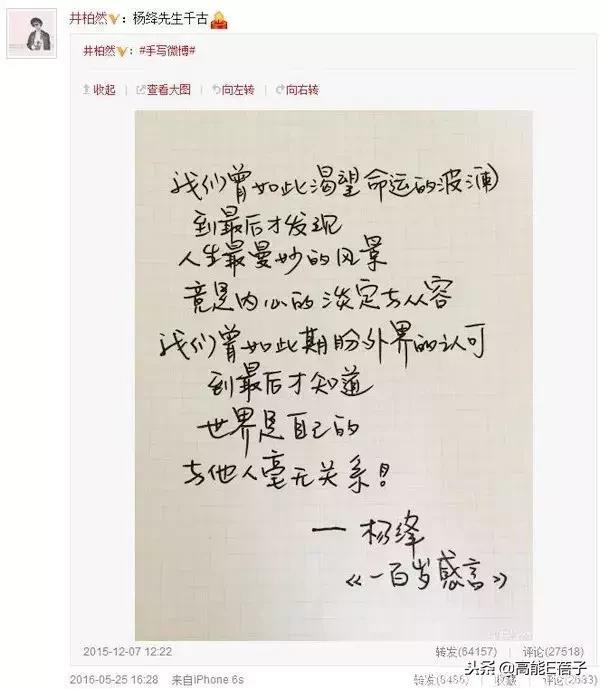 井柏然V：杨绛先生千古
井柏然V：#手写微博#
收起 查看大图 向左转 向右转
我们曾如此渴望命运的波澜
到最后才发现
人生最曼妙的风景
竟是内心的淡定与从容
我们曾如此期盼外界的认可
到最后才知道
世界是自己的
与他人毫无关系！
— 杨绛
《一百岁感言》
2015-12-07 12:22 转发(64157) 评论(27518)
2016-05-25 16:28 来自iPhone 6s 收藏
头条 @高能E蓓子